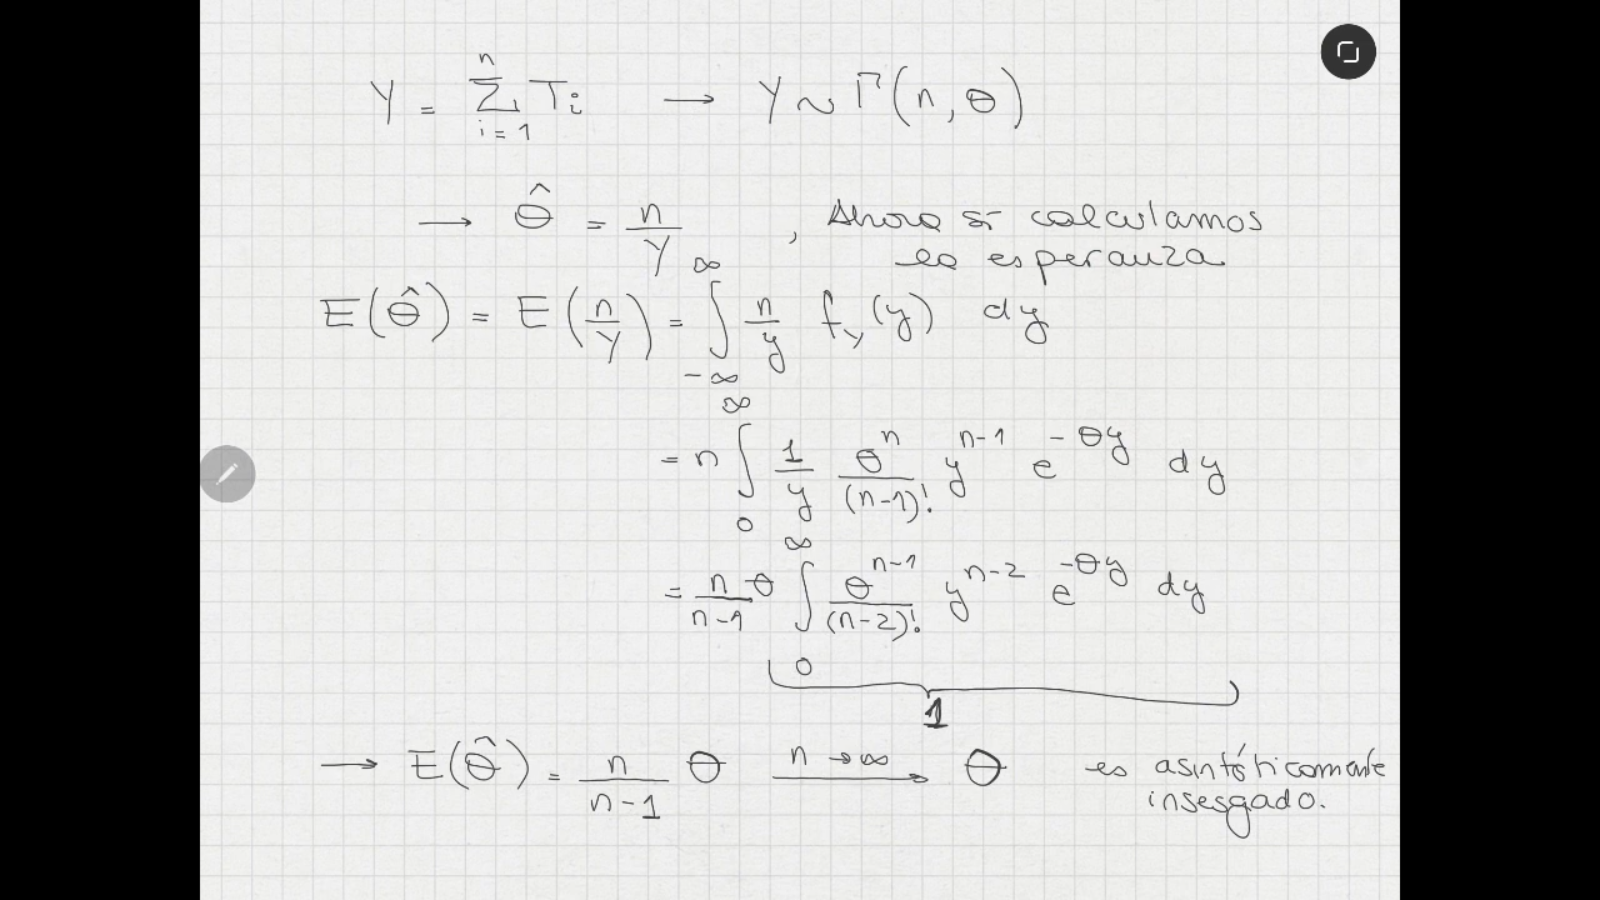 Y = ∑_{i=1}^{n} T_i → Y ~ Γ(n, θ)
→ θ̂ = n/Y , Ahora sí calculamos
la esperanza
E(θ̂) = E(n/Y) = ∫_{-∞}^{∞} n/y f_Y(y) dy
= n ∫_0^∞ 1/y θ^n/(n-1)! y^{n-1} e^{-θy} dy
= n/(n-1) θ ∫_0^∞ θ^{n-1}/(n-2)! y^{n-2} e^{-θy} dy
1
→ E(θ̂) = n/(n-1) θ →^{n→∞} θ es asintóticamente
insesgado.